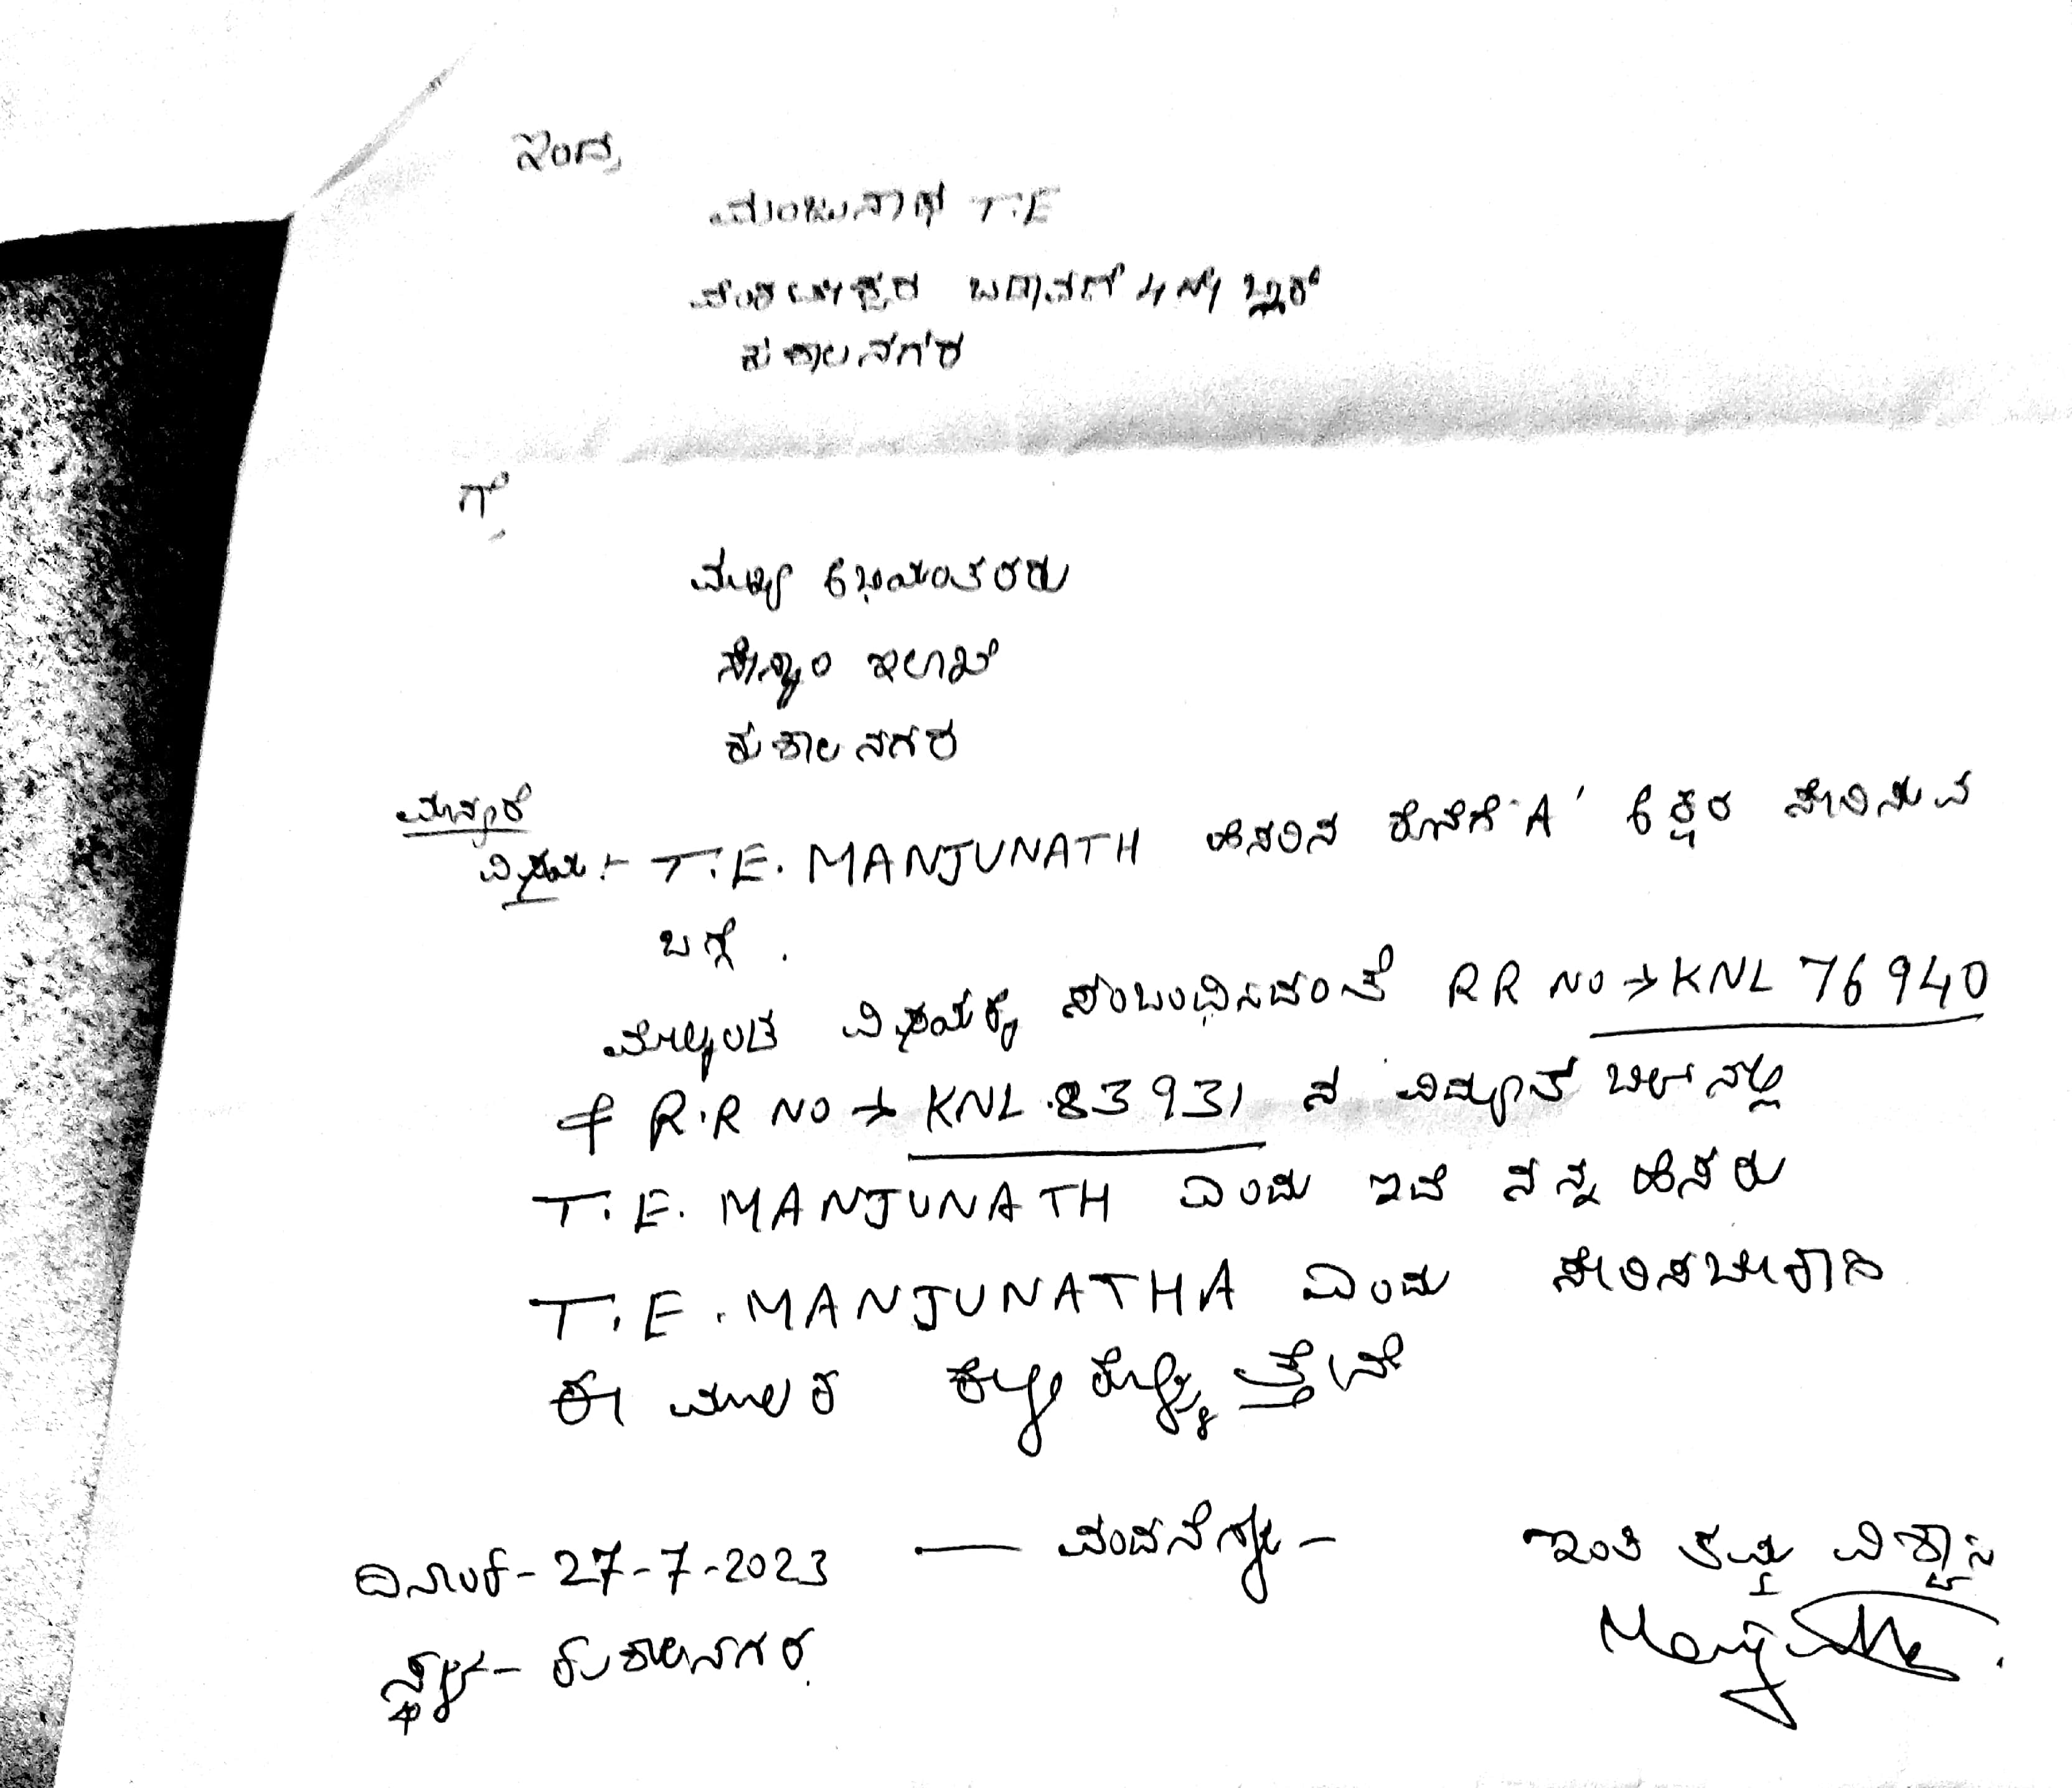 ಇಂದ,
ಮಂಜುನಾಥ T.E
ವೆಂಕಟೇಶ್ವರ ಬಡಾವಣೆ 4ನೇ ಬ್ಲಾಕ್
ಕುಶಾಲನಗರ
ಗೆ,
ಮುಖ್ಯ ಅಭಿಯಂತರರು
ಸೆಸ್ಕಾಂ ಇಲಾಖೆ
ಕುಶಾಲನಗರ
ಮಾನ್ಯರೆ
ವಿಷಯ :- T.E. MANJUNATH ಹೆಸರಿನ ಕೊನೆಗೆ 'A' ಅಕ್ಷರ ಸೇರಿಸುವ
ಬಗ್ಗೆ .
ಮೇಲ್ಕಂಡ ವಿಷಯಕ್ಕೆ ಸಂಬಂಧಿಸಿದಂತೆ RR NO → KNL 76940
& R.R NO → KNL.83931 ನ ವಿದ್ಯುತ್ ಬಿಲ್ ನಲ್ಲಿ
T.E. MANJUNATH ಎಂದು ಇದೆ ನನ್ನ ಹೆಸರು
T.E.MANJUNATHA ಎಂದು ಸೇರಿಸಬೇಕಾಗಿ
ಈ ಮೂಲಕ ಕೇಳಿಕೊಳ್ಳುತ್ತೇನೆ
— ವಂದನೆಗಳು –
ದಿನಾಂಕ - 27-7-2023
ಸ್ಥಳ - ಕುಶಾಲನಗರ.
ಇಂತಿ ತಮ್ಮ ವಿಶ್ವಾಸಿ